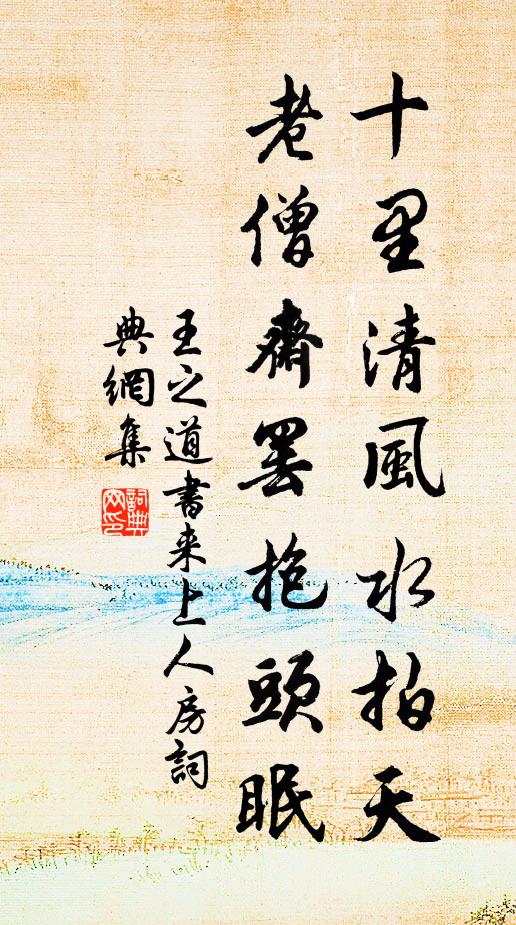 十里清風水拍天
老僧齋罷抱頭眠
王之道書来上人房詞
典網集
詞典網印